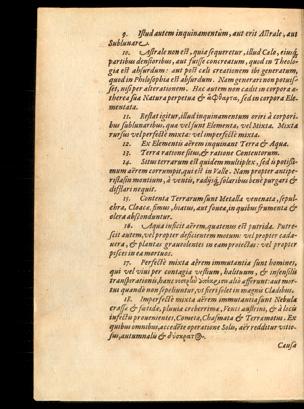 9. Istud autem inquinamentum, aut erit Astrale, aut
Sublunare.
10. Astrale non est, quia sequeretur, illud Cælo, eiusq́;
partibus densioribus, aut fuisse concreatum, quod in Theolo-
gia est absurdum: aut post cæli creationem ibo generatum,
quod in Philosophia est absurdum. Nam generari non potuis-
set, nisi per alterationem. Hæc autem non cadit in corpora æ-
therea sua Natura perpetua & ἄφθαρτα, sed in corpora Ele-
mentata.
11. Restat igitur, illud inquinamentum oriri à corpori-
bus sublunaribus, quæ vel sunt Elementa, vel Mixta. Mixta
rursus vel perfectè mixta: vel imperfectè mixta.
12. Ex Elementis aërem inquinant Terra & Aqua.
13. Terra ratione situs, & ratione Contentorum.
14. Situs terrarum est quidem multiplex, sed is potissi-
mum aërem corrumpit, qui est in Valle. Nam propter antipe-
ristasin montium, à ventis, radijsq́; solaribus benè purgari &
difflari nequit.
15. Contenta Terrarum sunt Metalla venenata, sepul-
chra, Cloacæ, fimus, hiatus, aut fovea, in quibus frumenta &
olera absconduntur.
16. Aqua inficit aërem, quatenus est putrida. Putre-
scit autem, vel propter deficientem motum: vel propter cada-
vera, & plantas graveolentes in eam proiectas: vel propter
pisces in ea mortuos.
17. Perfectè mixta aërem immutantia sunt homines,
qui vel vivi per contagia vestium, halituum, & insensilis
transpirationis, hanc noxiam alijs afferunt: aut mor-
tui quando non sepeliuntur, vt fieri solet in magnis Cladibus.
18. Imperfectè mixta aërem immutantia sunt Nebulæ
crassæ & fœtidæ, pluvia creberrima, Venti austrini, & à locis
infectis provenientes, Cometa, Chasmata & Terræmotus. Ex
quibus omnibus, accedëte operatione Solis, aër redditur vitio-
sus, autumnalis & δύσκρατος.
Causa